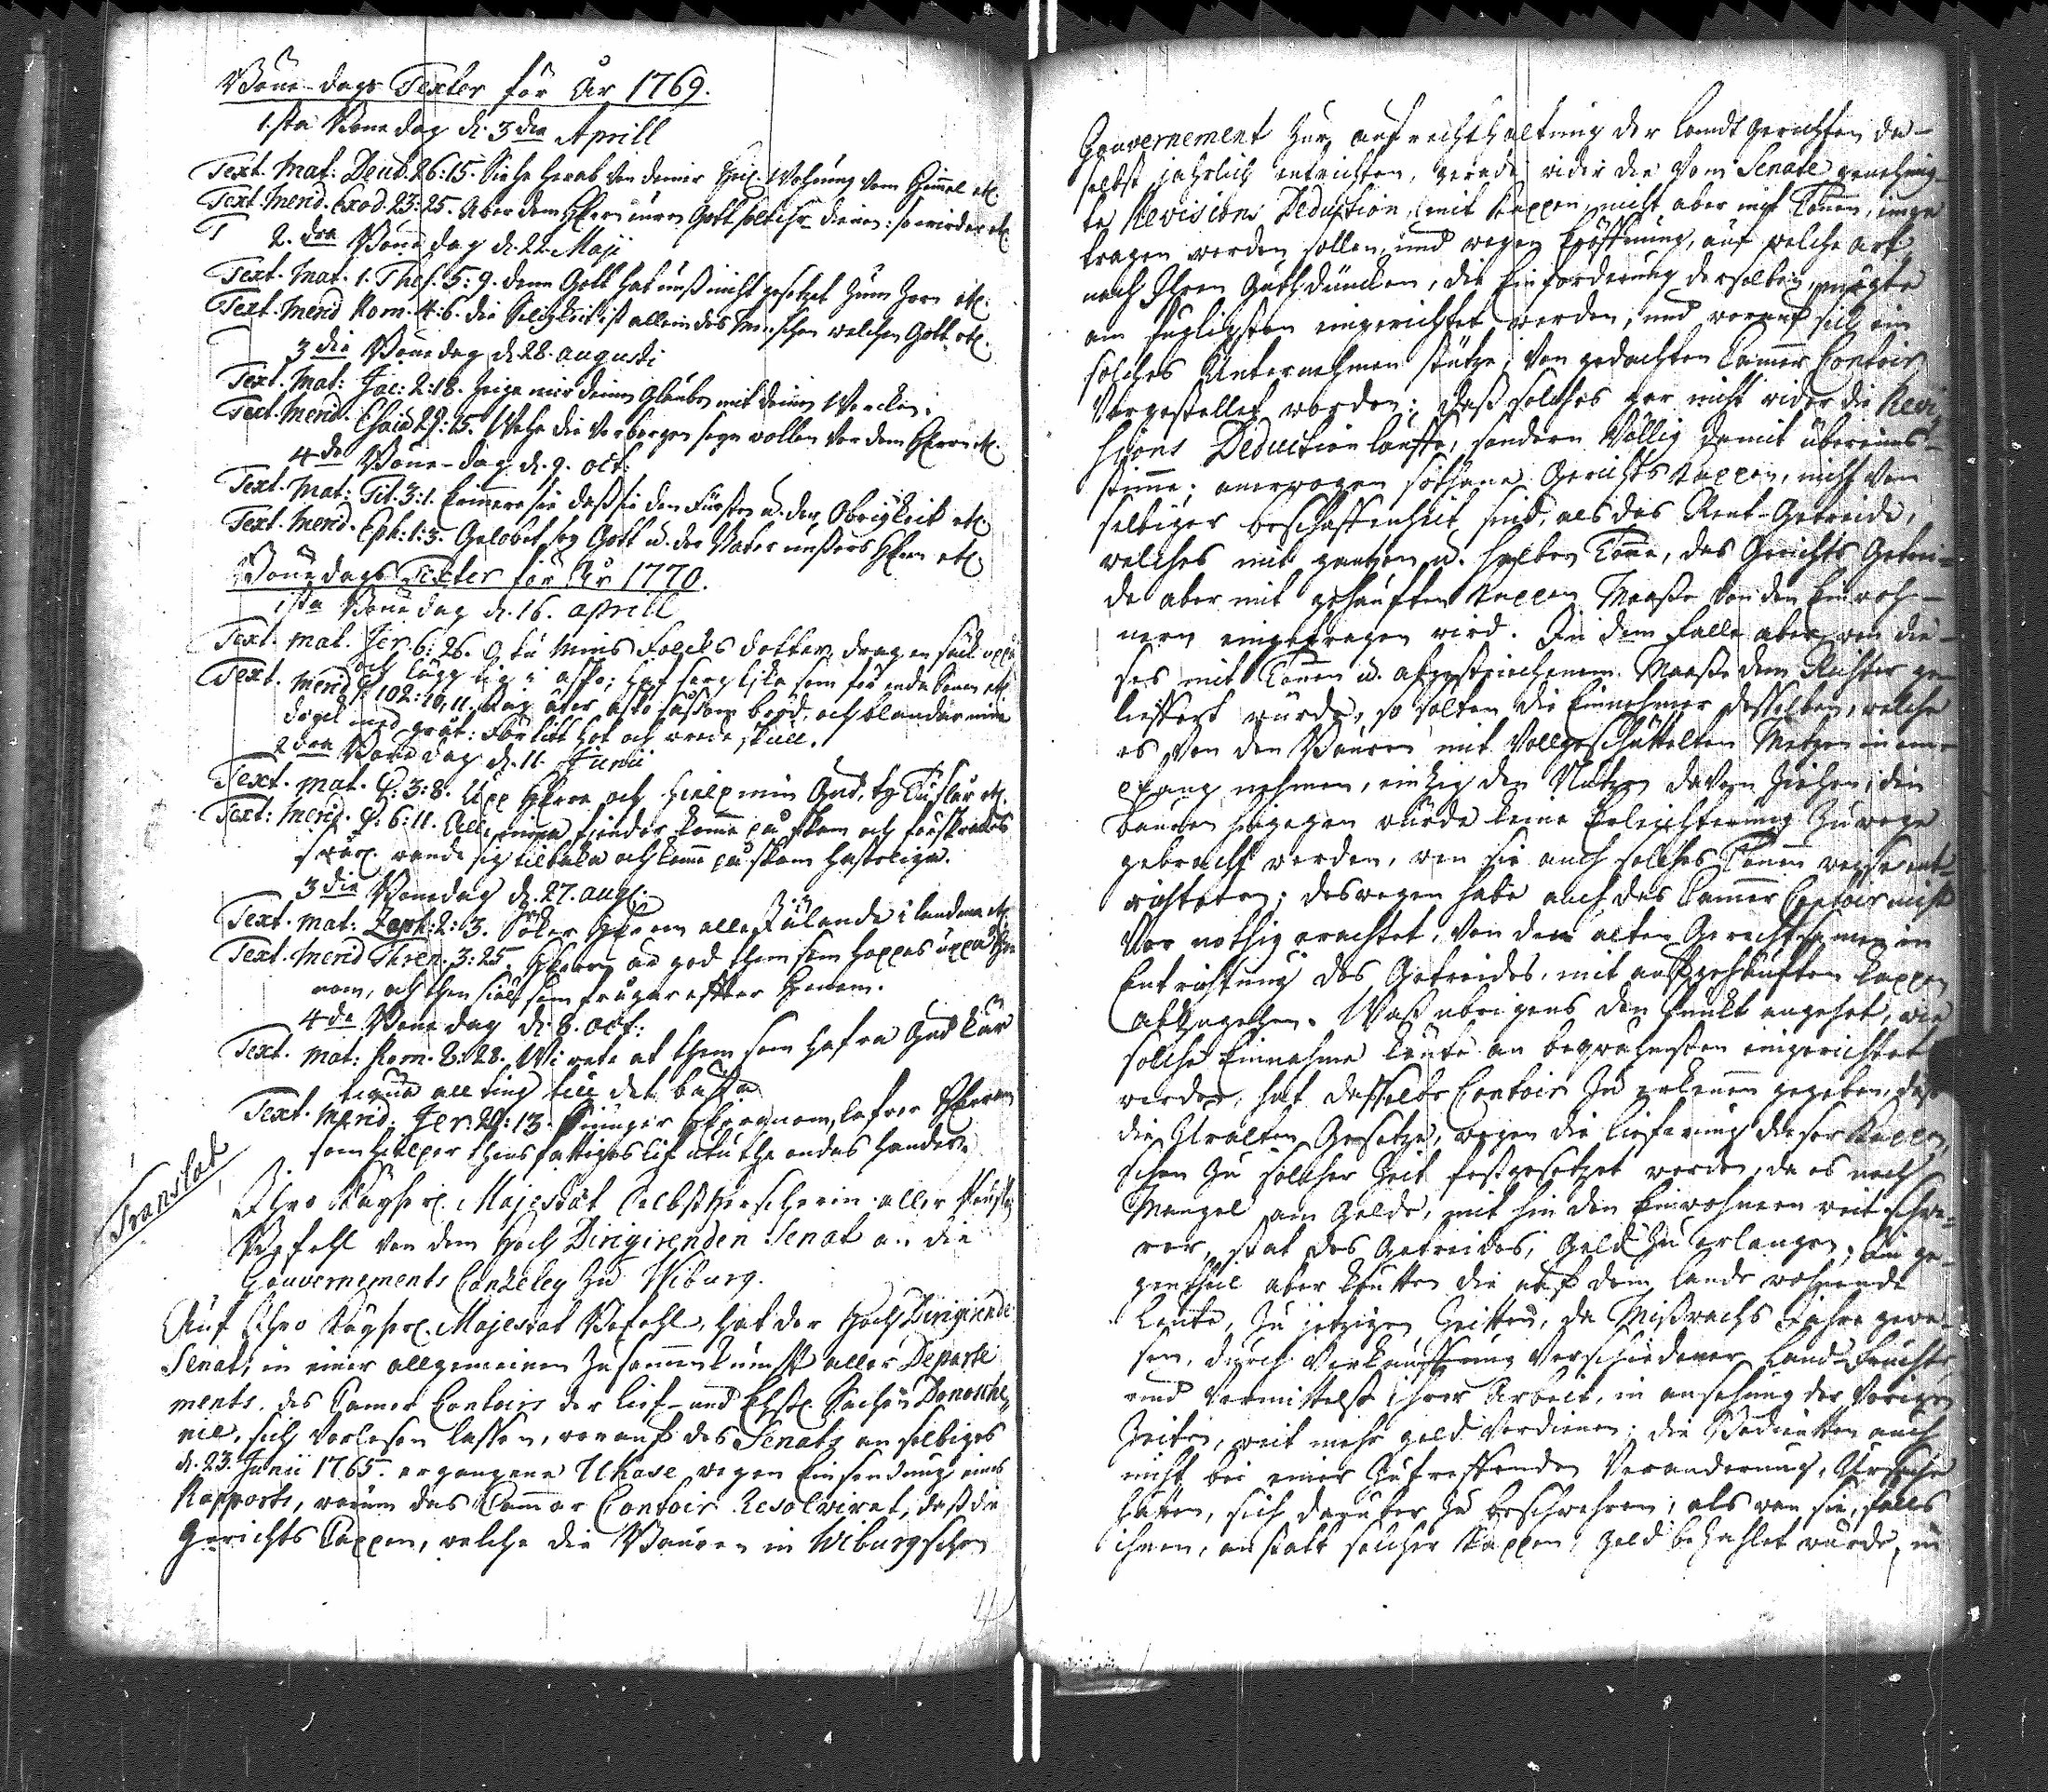 Böne-dags Texter för År 1769.
1.sta Bönedag d. 3die Aprill
Text. Mat: Deut. 26:15. Siehe herab von deiner Heil. Wohnung vom Himmel etc
Text. Merid. Exod. 23:25. Aber dem Herrn euren Gott solt ihr dienen: so wird er etc
T
2.dra Bönedag d. 22. Maji
Text. Mat. 1. Thes. 5:9. denn Gott hat unß nicht gesetzet zum Zorn etc.
Text. Merid Rom. 4:6. die Seligkeit ist allein des Menschen welchen Gott etc.
3die Bönedag d. 28. augusti
Text. Mat: Jac: 2:18. Zeige mir deinen Glauben mit deinen Wercken.
Text. Merid. Esaiæ 29:15. Wehe die verborgen seyn wollen vor dem Herrn etc.
4de Böne-dag d. 9. oct:
Text. Mat: Tit. 3:1. Erinnere sie daß sie den Fürsten u. der Obrigkeit etc
Text. Merid. Eph: 1:3. Gelobet sey Gott u. der Vater unsers Herrn etc
Bönedags Texter för År 1770.
1sta Bönedag d. 16. aprill
Text. Mat. Jer. 6:26. O tu mins Folcks dotter, drag en säck uppå
och lägg tig i asko;
Text. Merid ps. 102:10,11. Tag äter asko såsom bröd, och blandar min
2dra Bönedag d. 11. Junii
Text. Mat. ps: 3:8. Upp Herre och hielp min Gud, ty Tu slår etc.
Text: Merid. ps: 6:11. Alle mine fiender komme på skam och förskräckes
swårl. wände sig tilbaka och komme på skam hasteliga.
3die Bönedag d. 27. aug:
Text. Mat: Zeph: 2:3. Söker Herren alle i Elände i landena etc.
Text. Merid Thren. 3:25. Herren är god them som hoppas uppå Ho
nom, och then siäl som frågar effter honom.
4de Bönedag d. 8. oct:
Text. Mat: Rom. 8:28. Wi wete at them som hafwa Gud kär
tiena all ting till det bästa
Text. Merid. Jer: 20:13. Siunger Herranom, lofwer Herran
som hielper thens fattigas lif utu the ondas händer.
Translat
Ihro Kayserl. Majestät Selbstherscherin aller Reussen
Befehl von dem Hoch Dirigirenden Senat an die
Gouvernements Canzeley zu Wiburg.
Auf Ihro Kayserl. Majestät Befehl, hat der Hoch Dirigirende
Senat, in einer allgemeinen Zusammenkunfft aller Departe
ments. des Camer Contoirs der Lief- und Ehstl. Sachen
sich vorlesen lassen, worauf des Senats an selbiges
d. 23. Junii 1765. ergangene Ukase wegen Einsendung eines
Rapports, warum das Cammer Contoir Resolviret, daß die
Gerichts Cappen, welche die Bauren in Wiburgschen
Gouvernement zur aufrechthaltung der Landtgerichten da-
selbst jahrlich entrichten, gerade wider die vom Senate genehmig-
te Revisions Deduction, mit Kappen, nicht aber mit Tonnen, einge
tragen werden sollen, und wegen Eröffnung, auf welche Art
nach Ihren Guthdüncken, die Einforderung derselben mögte
am fuglichsten eingerichtet werden, und worauf sich ein
solches Unternehmen stütze; von gedachten Camer Contoir
vorgestellet worden: daß solches gar nicht wider die Revi
sions Deduction lauffe, sondern völlig damit übereins-
timme; anerwogen sothane Gerichts Kappen, nicht von
selbiger beschaffenheit sind, als das Rent-Getreide,
welches mit gantzen u. halben Tonne, das Gerichts Getrei-
de aber mit gehäufften Kappen Maaße von den Einwoh-
nern eingetragen wird. In dem Falle aber, wen die-
ses mit Tonnen u. abgestrichenem Maaße dem Richter ge-
liefert würde, so solten die Einnehmer desselben, welche
es von den Bauren mit vollgeschüttelten Metzen in em-
pfang nehmen, eintzig den Nutzen davon ziehen; den
Bauren hingegen würde keine Erleichterung zuwege
gebracht werden, wen sie auch solches Tonnen weise ent-
richteten; deswegen habe auch das Camer Contoir nicht
vor nöthig erachtet, von dem alten Gerechtsamen in
Entrichtung des Getreides, mit aufgehäuften Kappen
abzugehen. Waß ubrigens den Punkt angehet, wie
solche Einnahme künte an beqwehmsten eingerichtet
werden, hat dasselbe Contoir zu erkennen gegeben, daß
die Uralten Gesetze, wegen die Lieferung dieser Kappen,
schon zu solcher Zeit festgesetzet worden, da es noch
Mangel am Gelde, mithin den Einwohnern weit schwe-
rer, stat des Getreides, Geld zu erlangen; im ge-
gentheil aber künten die auf dem Lande wohnende
Leute, zu jetzigen Zeitten, da Mißwachs Jahre gewe-
sen, durch Verkauffung verschiedener Land-Früchte
und vermittelst ihrer Arbeit, in ansehung der vorigen
Zeiten, weit mehr geld verdienen; die Bedienten auch
nicht bei einer zutreffenden Veränderung, Ursache
hätten, sich darüber zu beschwehren; als wen sie, falls
ihnen, anstatt solcher Kappen, Geld bezahlet würde, in